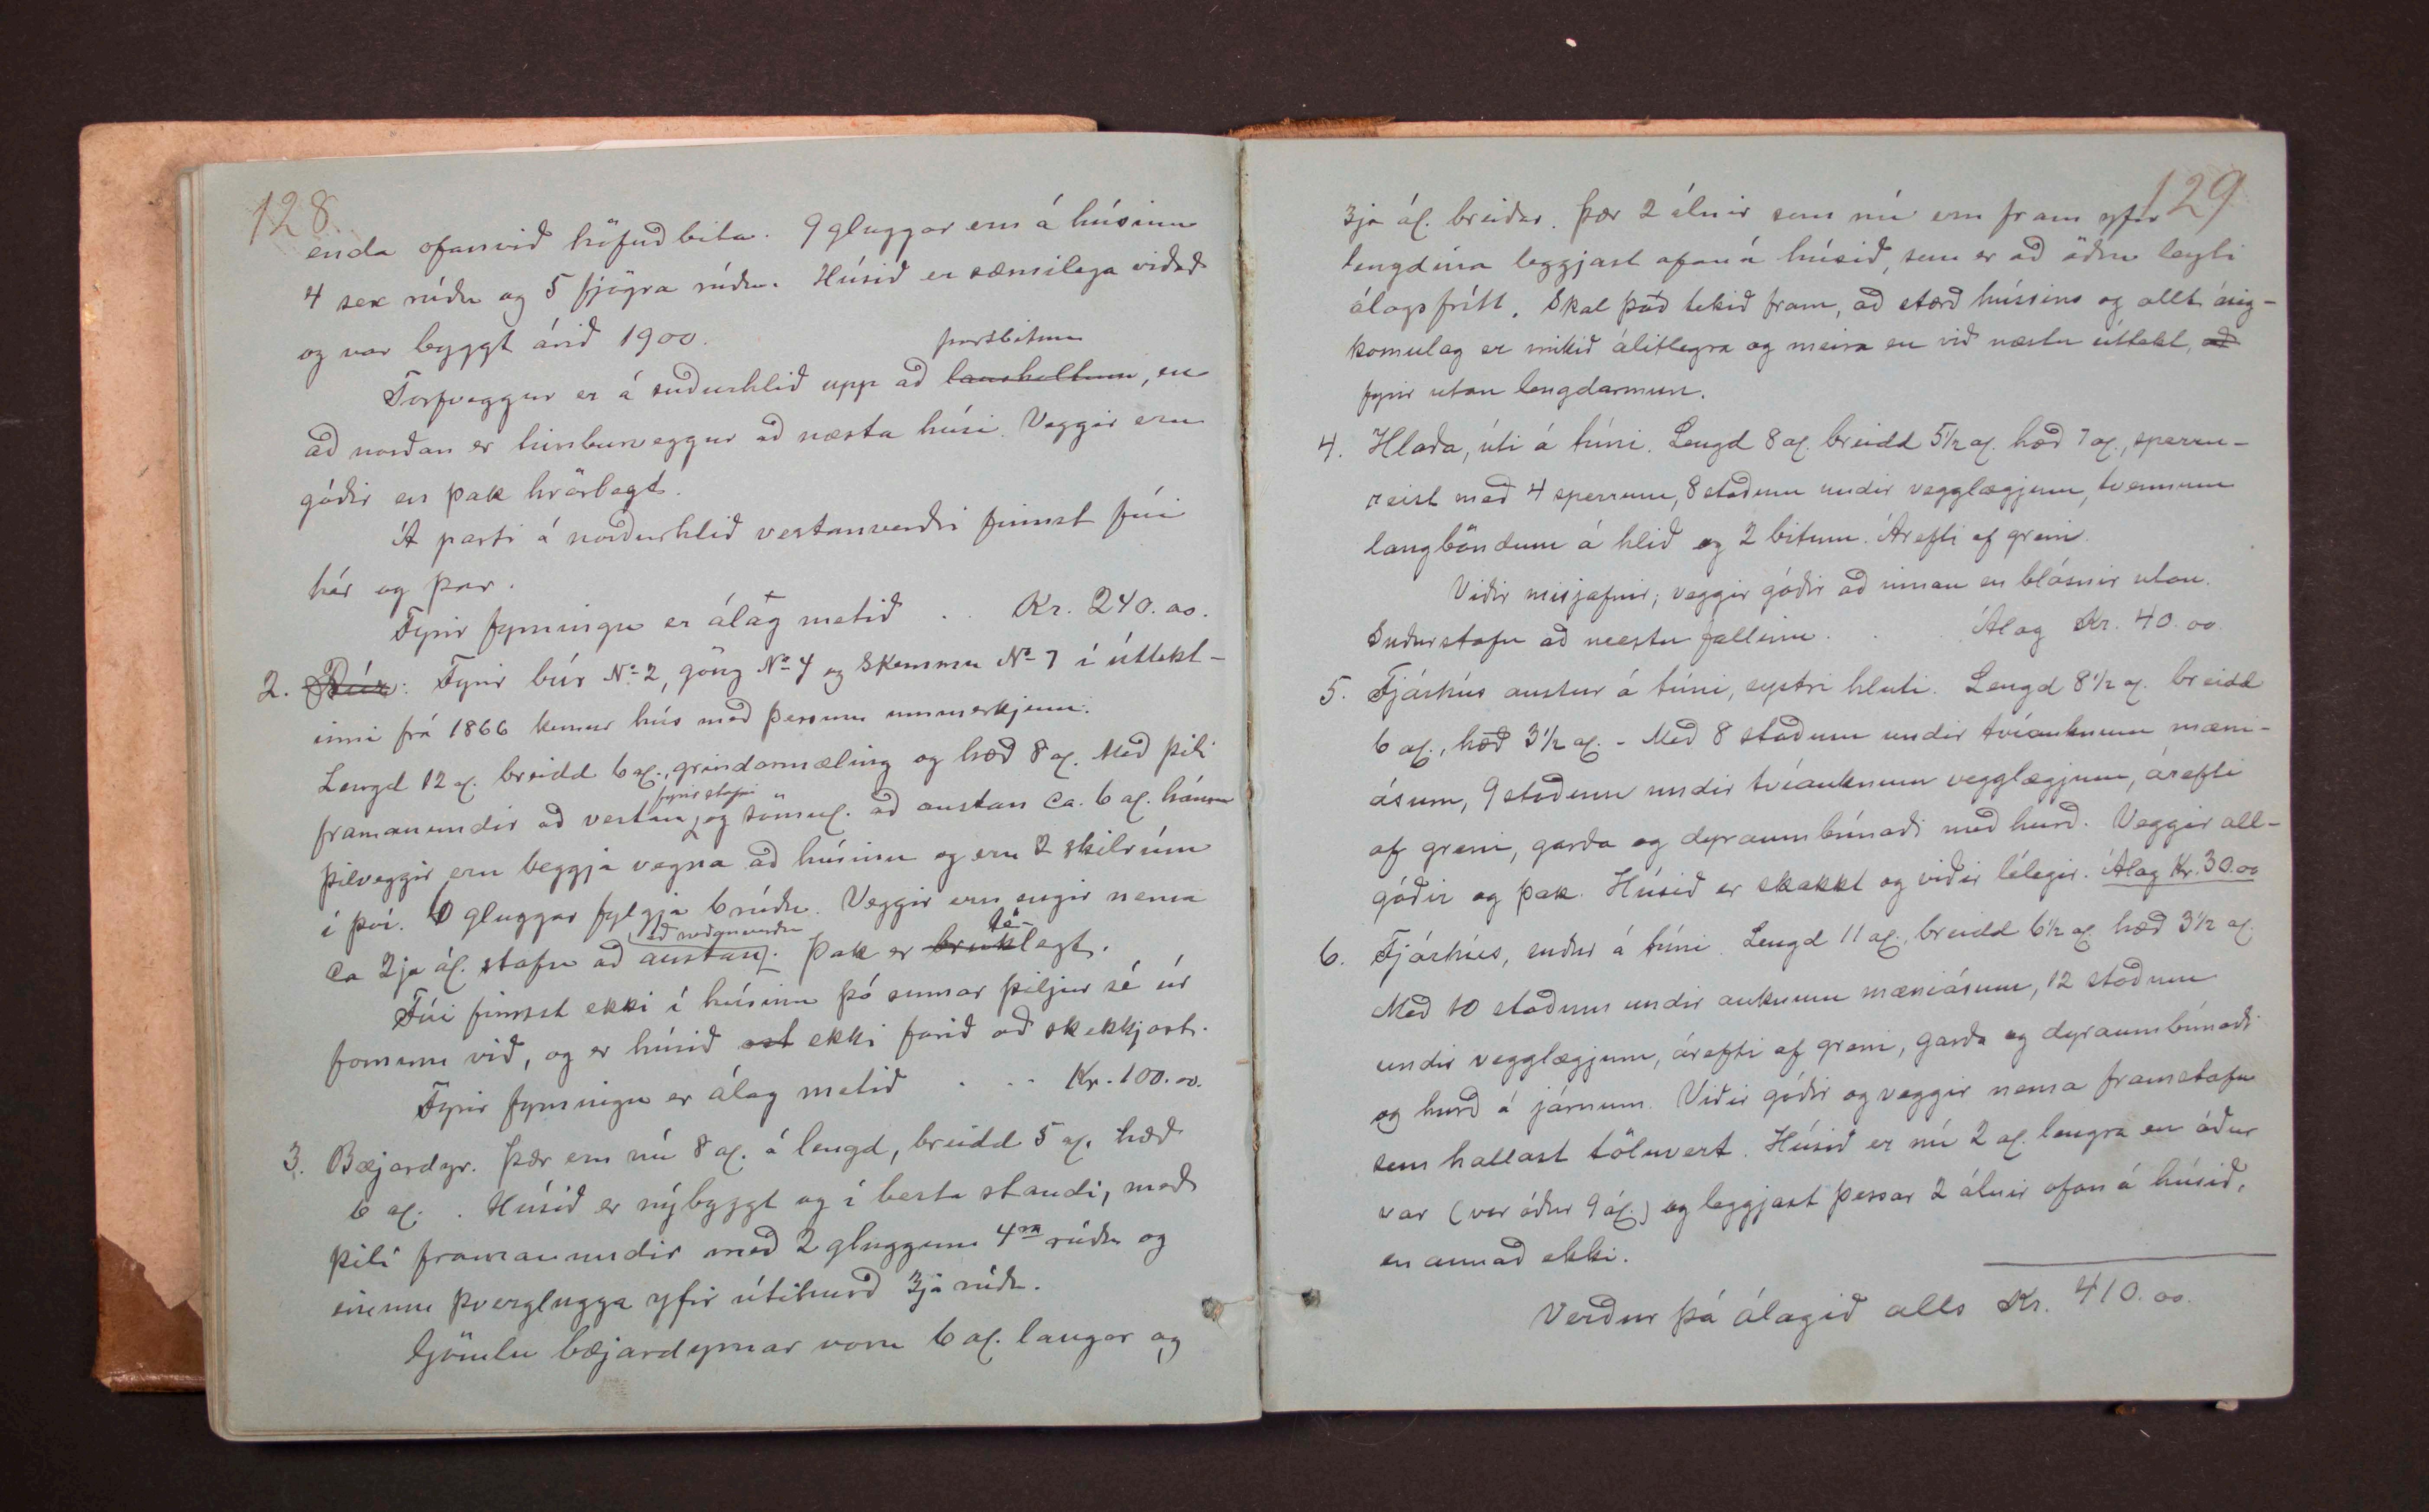 128.
enda ofanvið höfuðbita. 9 gluggar eru á húsinu
4 sex rúðu og 5 fjögra rúðu. Húsið er sæmilega viðað
og var byggt árið 1900.
þversbitum
Torfveggur er á suðurhlið upp að lausholtum, en
að norðan er timburveggur að næsta húsi. Veggir eru
góðir en þak hrörlegt.
Á parti á norðurhlið vestanverðri finnst fúi
hér og þar.
Fyrir fyrningu er álag metið . . Kr. 240.00.
2. Búr: Fyrir búr No 2, göng No 4 og Skemmu No 7 í úttekt-
inni frá 1866 kemur hús með þessum ummerkjum:
Lengd 12 al. breidd 6 al., grindarmæling og hæð 8 al. Með þili
fyrir stafni
framanundir að vestan, og sömul. að austan ca. 6 al. háum
þilveggir eru beggja vegna að húsinu og eru 2 skilrúm
í því. 10 gluggar fylgja 6 rúðu. Veggir eru engir nema
að neðanverðu
lé-
ca 2ja ál. stafn að austan. Þak er bruklegt.
Fúi finnst ekki í húsinu þó sumar þiljur sé úr
fornum við, og er húsið ekki farið að skekkjast.
Fyrir fyrningu er álag metið . . . Kr. 100.00.
3. Bæjardyr. Þær eru nú 8 al. á lengd, breidd 5 al. hæð
6 al. . Húsið er nýbyggt og í besta standi, með
þili framanundir með 2 gluggum 4ra rúðu og
einum þverglugga yfir útihurð 3ja rúðu.
Gömlu bæjardyrnar voru 6 al. langar og
129
3ja ál. breiðar. Þær 2 álnir sem nú eru fram yfir
lengdina leggjast ofaná húsið, sem er að öðru leyti
álagsfrítt. Skal það tekið fram, að stærð hússins og allt ásig-
komulag er mikið álitlegra og meira en við næstu úttekt, að
fyrir utan lengdarmun.
4. Hlaða, úti á túni. Lengd 8 al. breidd 5 1/2 al. hæð 7 al., sperru-
reist með 4 sperrum, 8 stoðum undir vegglægjum, tvennum
langböndum á hlið og 2 bitum. Árefti af greni.
Viðir misjafnir; veggir góðir að innan en blásnir utan.
Suðurstafn að mestu fallinn . . Álag Kr. 40.00.
5. Fjárhús austur á túni, systri hluti. Lengd 8 1/2 al. breidd
6 al., hæð 3 1/2 al. - Með 8 stoðum undir tvíauknum mæni-
ásum, 9 stoðum undir tvíauknum vegglægjum, árefti
af greni, garða og dyraumbúnaði með hurð. Veggir all-
góðir og þak. Húsið er skakkt og viðir lélegir. Álag Kr. 30.00
6. Fjárhús, suður á túni. Lengd 11 al., breidd 6 1/2 al. hæð 3 1/2 al.
Með 10 stoðum undir auknum mæniásum, 12 stoðum
undir vegglægjum, árefti af greni, garða og dyraumbúnaði
og hurð á járnum. Viðir góðir og veggir nema framstafn
sem hallast töluvert. Húsið er nú 2 al. lengra en áður
var (var áður 9 ál.) og leggjast þessar 2 álnir ofan á húsið,
en annað ekki.
Verður þá álagið alls Kr. 410.00.